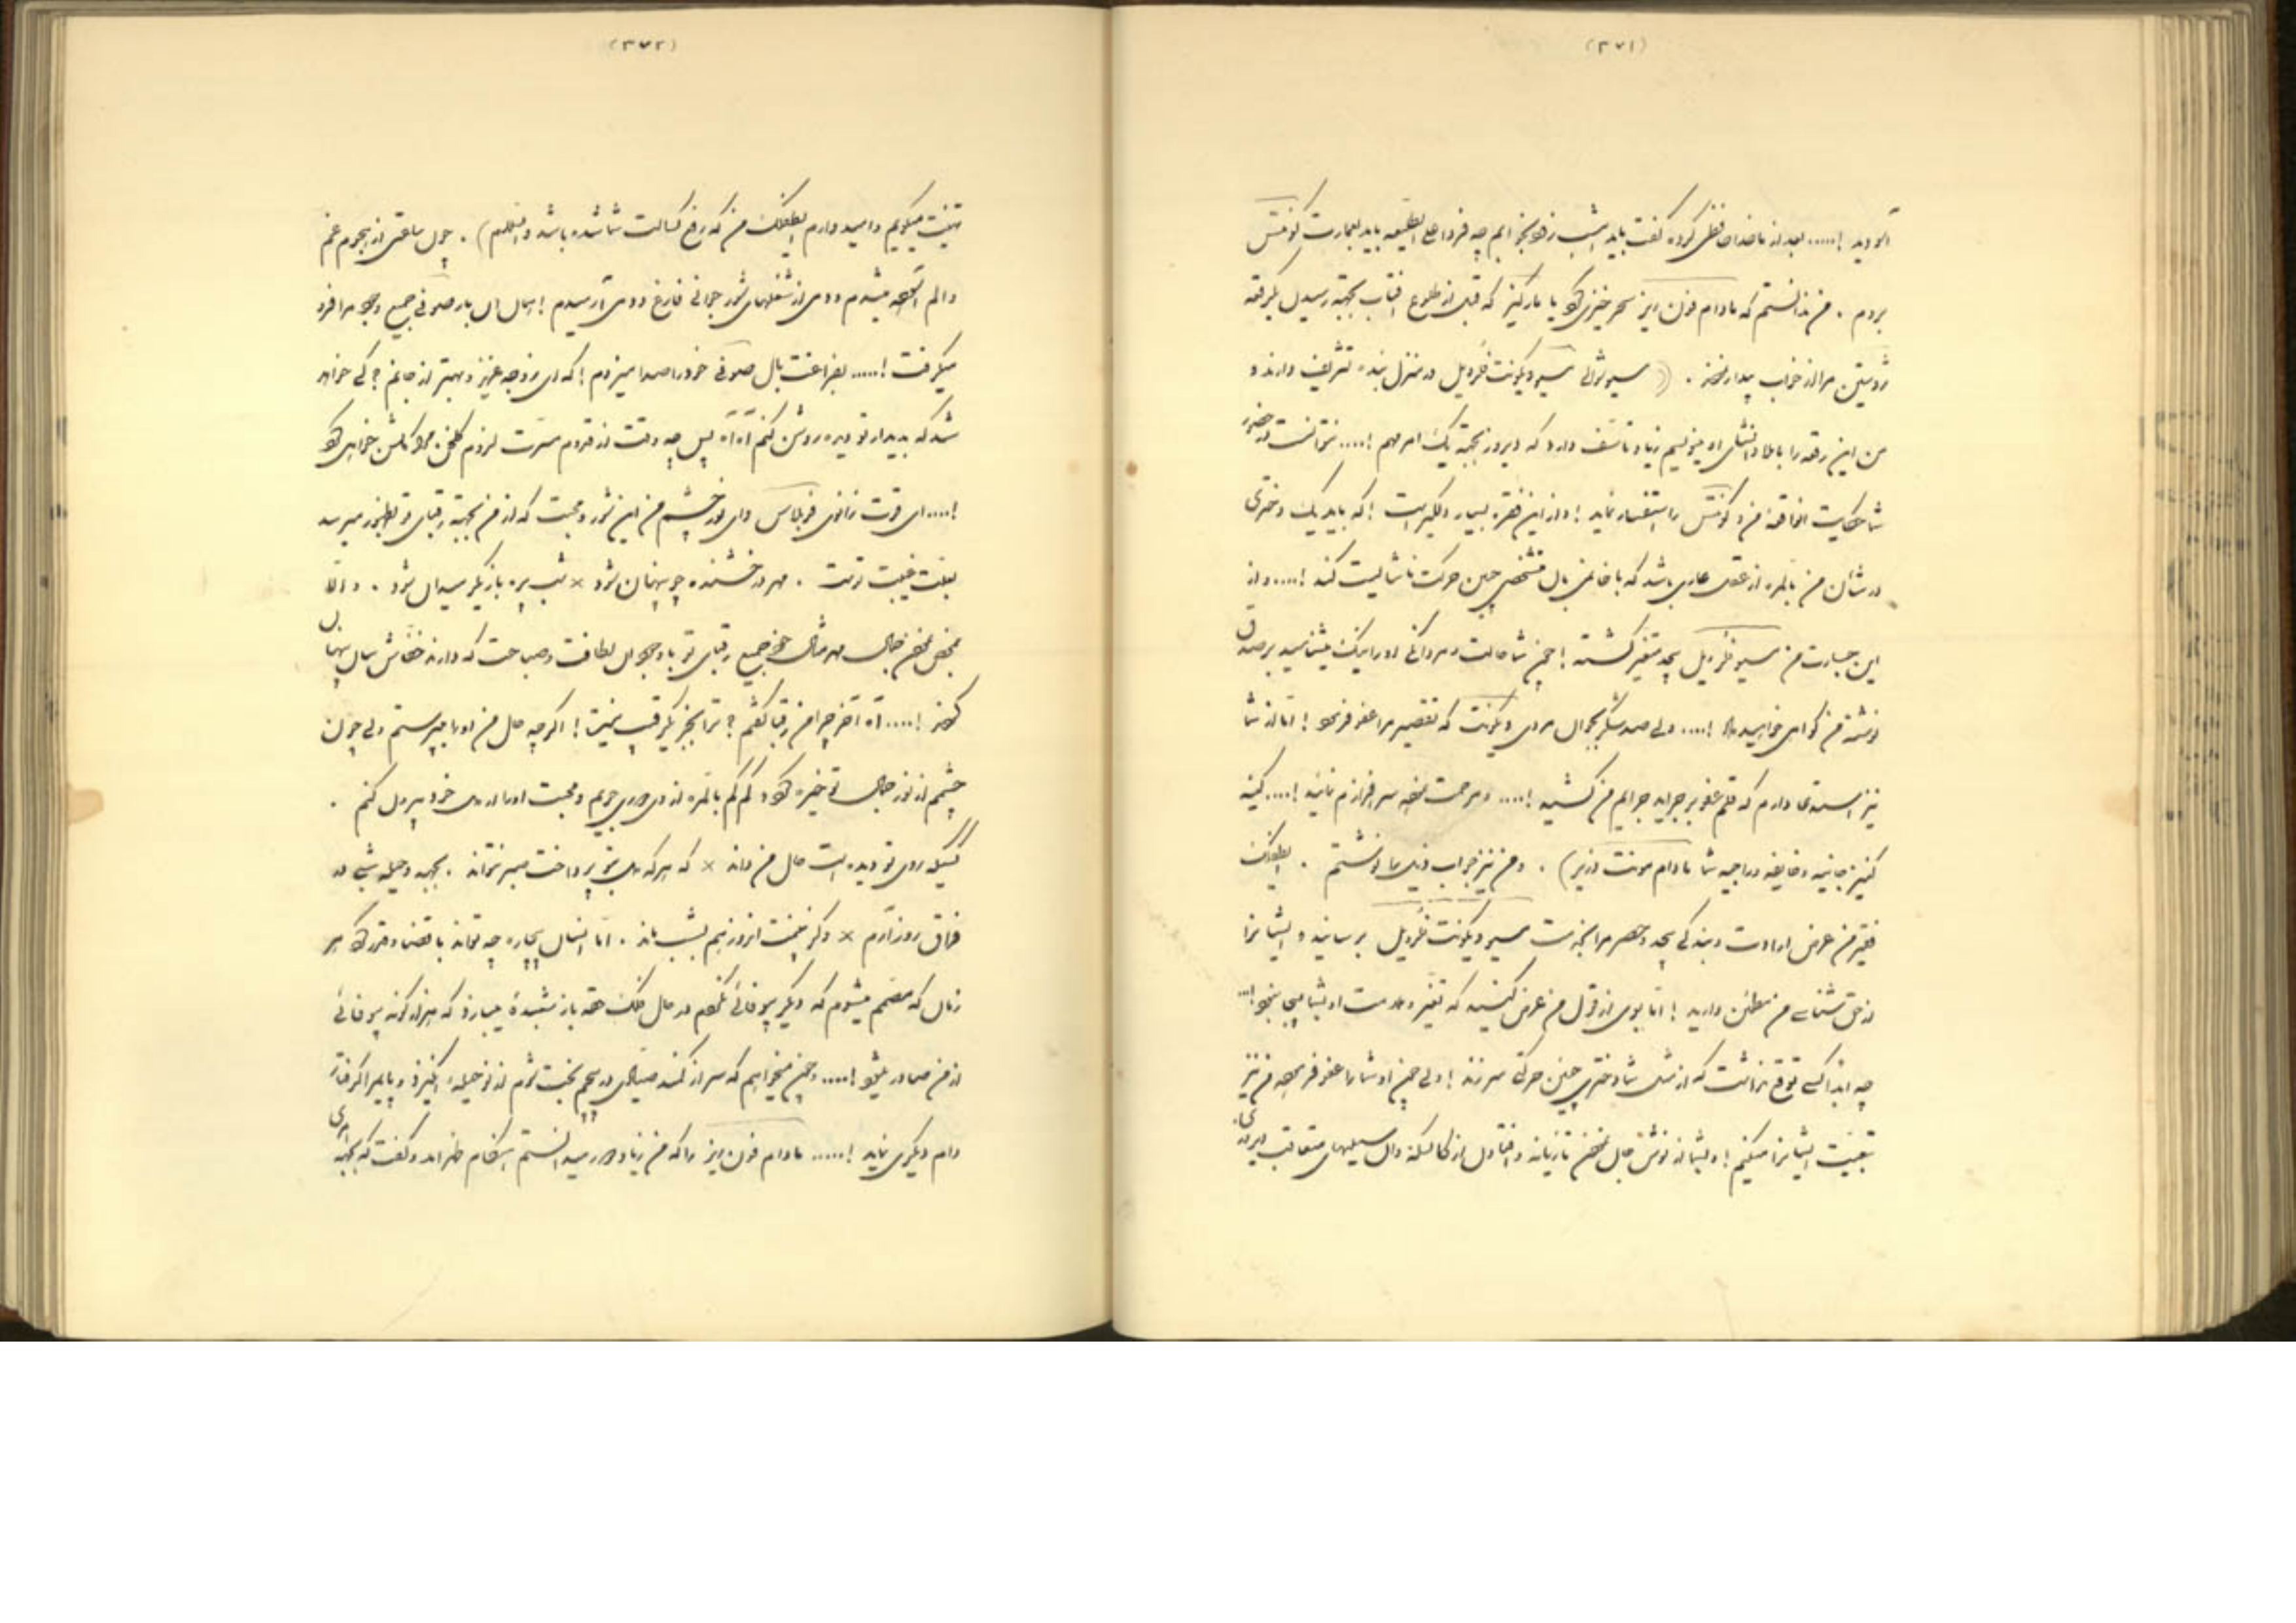 (۳۷۱)
آورید !..... بعد از ما خدا حافظی کرده گفت باید امشب زود بخوابیم چه فردا علی الطلیعه باید بعمارت کونتس
بروم . من ندانستم که مادام فون ریز سحرخیزی کو یا مارکیز که قبل از طلوع آفتاب بجهة رسیدن رقعه
مرا از خواب بیدار . مسیو ژولی مسیو ویکونت فردیل در منزل بنده تشریف دارند و
من این رقعه را باطلاع و انشای او مینویسم زیاد تأسف دارد که دیروز بجهة یک امر مهم !.... نتوانست در حضور
شما حکایت اتفاقیه من و کونتس را استفسار نماید ! و از این فقره بسیار دلگیر است ! که باید یک دختری
در شأن من بالمره از عقل عاری باشد که با خانمی بآن مشخصی چنین حرکت ناشایست کند !.... و از
این جسارت من مسیو فردیل بیحد متغیر گشته ! چون شما حالت و مردانگی او را نیک میشناسید بر صدق
نوشته من گواهی خواهید داد !.... ولی صد شکر بجوان مردی ویکونت که تقصیر مرا عفو فرمود ! اما از شما
نیز استدعا دارم که قلم عفو بر جراید جرایم من کشید !.... و مرحمت نموده سرافرازم نمائید !.... کمینه
کنیز جانیه و خایفه و راجیه شما مادام مونت وزیر) . و من نیز جواب ذیل را نوشتم .
فقیر من عرض ارادت و بندگی بیحد و حصر مرا بخدمت مسیو ویکونت فردیل برسانید و ایشانرا
از حق شناسی من مطمئن دارید ! اما بوی از قول من عرض کنید که تغیر و ملامت او بشما بیجا نبود !...
چه ابداً کسی توقع نداشت که از مثل شما دختری چنین حرکتی سر زند ! ولی چون او شما را عفو فرموده من نیز
تبعیت ایشانرا میکنم ! و بشما از نوش جان نمودن تازیانه و افتادن از کالسکه و آن سیلیهای متعاقب دیروزی
(۳۷۲)
تهنیت میگویم و امیدوارم که رفع کسالت شما شده باشد والسلام) . چون ساعتی از هجوم غم
و الم آسوده میشدم و دمی از شغلهای شور جوانی فارغ و دمی آرمیدم ! خیال آن یار صوفی جمیع وجود مرا فرو
میگرفت !..... بفراغت بال صوفی خود را صدا میزدم ! که ای زوجه عزیز و بهتر از جانم ؟ کی خواهد
شد که بدیدار تو دیده روشن کنم آه آه پس چه وقت از قدوم مسرت لزوم گلخن ما گلشن خواهی کرد
!.... ای قوت زانوی و ای نور چشم من این شور و محبت که از من بجهة رقبای تو بظهور میرسد
بعلت غیبت تست . مهر درخشنده چو پنهان شود × شب پره بازیگر میدان شود . و الّا
بمحض نمودن جمال مهر مثال خود جمیع رقبای تو با وجود آن لطافت و صباحت که دارند خفاش سان پنهان
گردند !.... آه آخر چرا من رقبا گفتم ؟ ترا بجز یک رقیب نیست ! اگرچه حال من او را میپرستم ولی چون
چشمم از نور جمال تو خیره گردد کم کم بالمره از وی دوری جویم و محبت او را از دل خود بیرون کنم .
کسیکه روی تو دیده است حال من داند × که هر که دل بتو پرداخت صبر نتواند . بجهد و حیله شبی در
فراق روز آرم × وگر نبینمت امروز هم بشب ماند . اما انسان بیچاره چه تواند با قضا و قدر کرد هر
زمان که مصمم میشوم که دیگر بیوفائی نکنم در حال فلک حقه باز شعبده میبازد که هزار گونه بیوفائی
از من صادر میشود !.... و چون میخواهم که سر از کمند صیادی در پیچم بخت شومم از نو حیله انگیزد و پایم را گرفتار
دام دیگری نماید !..... مادام فون ریز را که من زیاد دور میدانستم هنگام ظهر آمد و گفت که بجهة امری